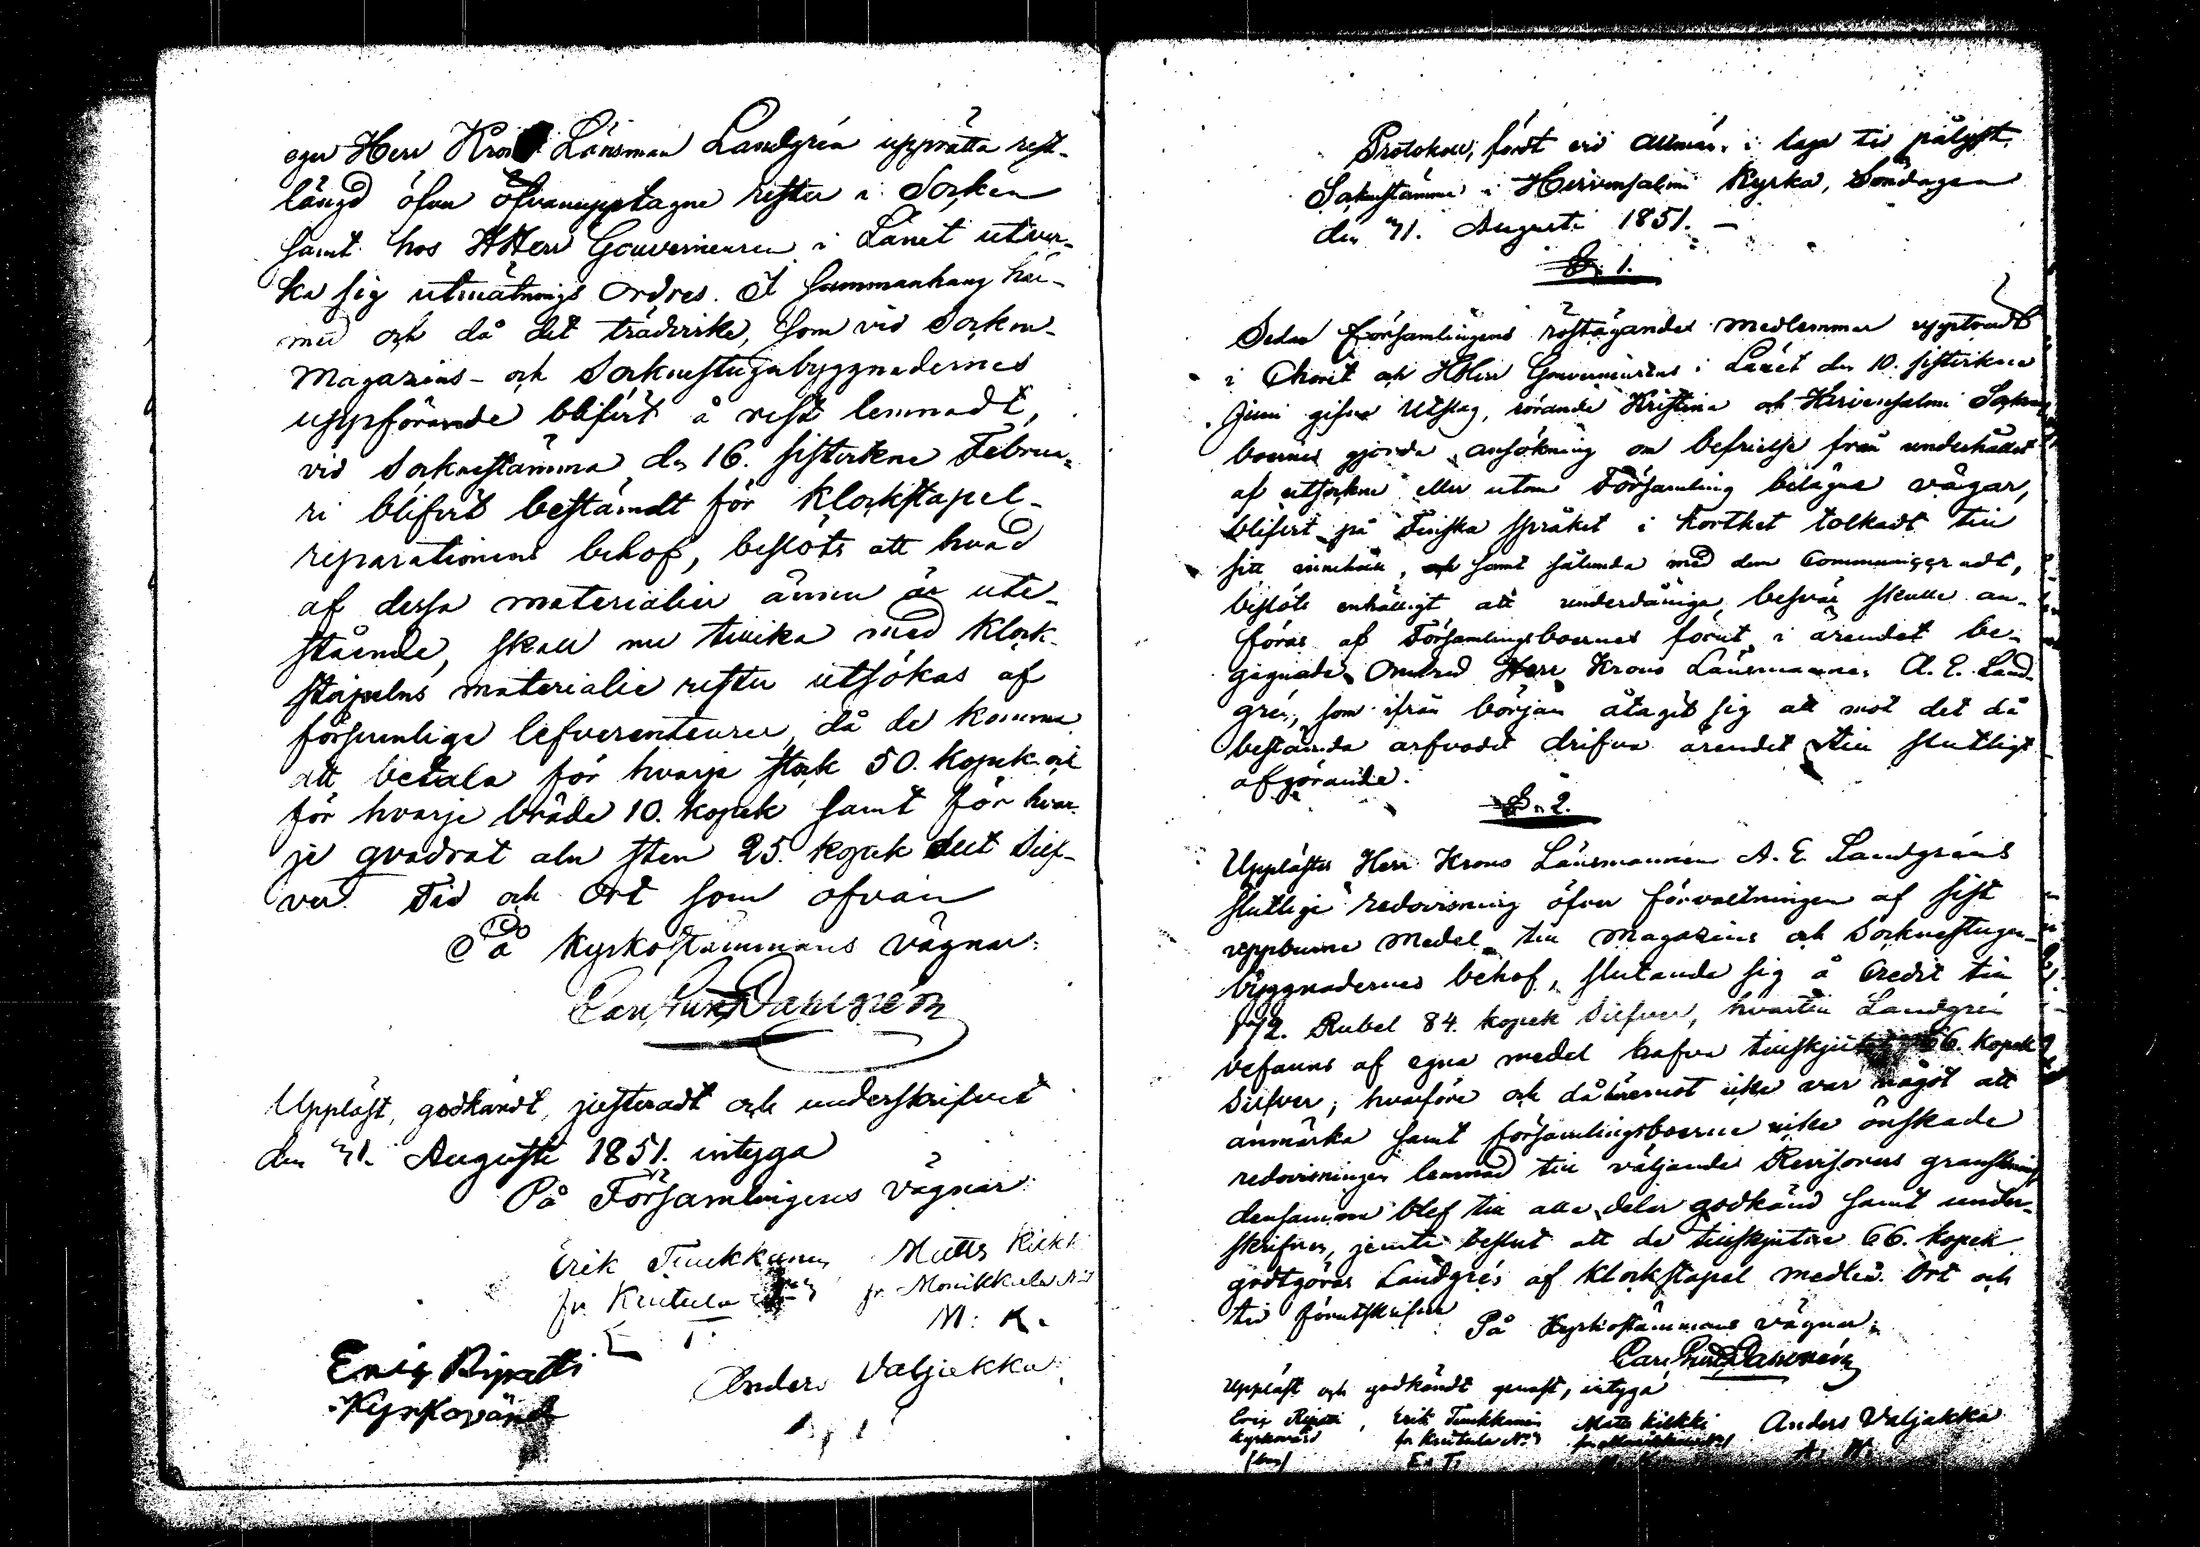 eger Herr Krono Länsman Landgrén upprätta rest-
längd öfver ofvanupptagne rester i Socken
samt hos HHerr Gouverneuren i Länet utver-
ka sig utmätnings ordres. I sammanhang här-
med och då det trädvirke, som vid Socken-
Magazins- och Sockenstugubyggnadernes
uppförande blifvit å rest lemnadt,
vid Socknestämma den 16. sistvekne Februa-
ri blifvit bestämdt för Klockstapel-
reparationens behof, beslöts att hvad
af dessa materialier ännu är ute-
stående, skall nu tillika med Klock-
stapelns materialie rester utsökas af
försumlige lefverenteurer, då de komma
att betala för hvarje stock 50. kopek och
för hvarje bräde 10. kopek samt för hvar-
je qvadrat aln sten 25. kopek allt Silf-
ver. Tid och Ort som ofvan
På Kyrkostämmans vägnar:
Carl Dahlgrén
Uppläst, godkändt, justeradt och underskrifvet
den 31. Augusti 1851. intyga
På Församlingens vägnar
Erik Tinkkanen Matts Kiekki
fr. Kuitula fr. Monikkala No 1
E T. M: K.
Eric Ripatti Anders Valjakka
Kyrkovärd
Protokoll, fördt vid Allmän, i laga tid pålyst,
Socknestämma i Hirvensalmi Kyrka, Söndagen
den 31. Augusti 1851. –
§. 1.
Sedan Församlingens röstägande medlemmar uppträdt
i Choret och HHerr Gouverneurens i Länet den 10. sistvekne
Juni gifne Utslag, rörande Kristina och Hirvensalmi Sockne
boernes gjorda ansökning om befrielse från underhållet
af utsockne eller utom Församling belägne vägar,
blifvit på Finska språket i korthet tolkadt till
sitt innehåll, och samt sålunda med dem communiceradt,
beslöts enhälligt att underdåniga besvär skulle an-
föras af Församlingsboernes förut i ärendet be-
gagnade Ombud Herr Krono Länsmannen A. E. Land-
grén, som ifrån början åtagit sig att mot det då
bestämda arfvodet drifva ärendet till slutligt
afgörande.
§. 2.
Upplästes Herr Krono Länsmannen A. E. Landgréns
slutliga redovisning öfver förvaltningen af sist
uppburne Medel till Magazins och Sockenstugu-
byggnadernes behof, slutande sig å Credit till
172. Rubel 84. kopek Silfver, hvartill Landgrén
befanns af egna medel hafva tillskjutit 66. kopek
Silfver; hvarföre och då häremot icke var något att
anmärka samt församlingsboerne icke önskade
redovisningen lemnad till väljande Revisorers granskning
densamma blef till alla delar godkänd samt under-
skrifven, jemte beslut att de tillskjutne 66. kopek
godtgöras Landgrén af Klockstapel medlen. Ort och
tid förutskrifne
På Kyrkostämmans vägnar:
Carl Dahlgrén
Uppläst och godkändt genast, intyga
Eric Ripatti, Erik Tinkkanen Matts Kiekki Anders Valjakka
Kyrkovärd fr Kuitula No 3 fr Monikkala No 1
E. T.